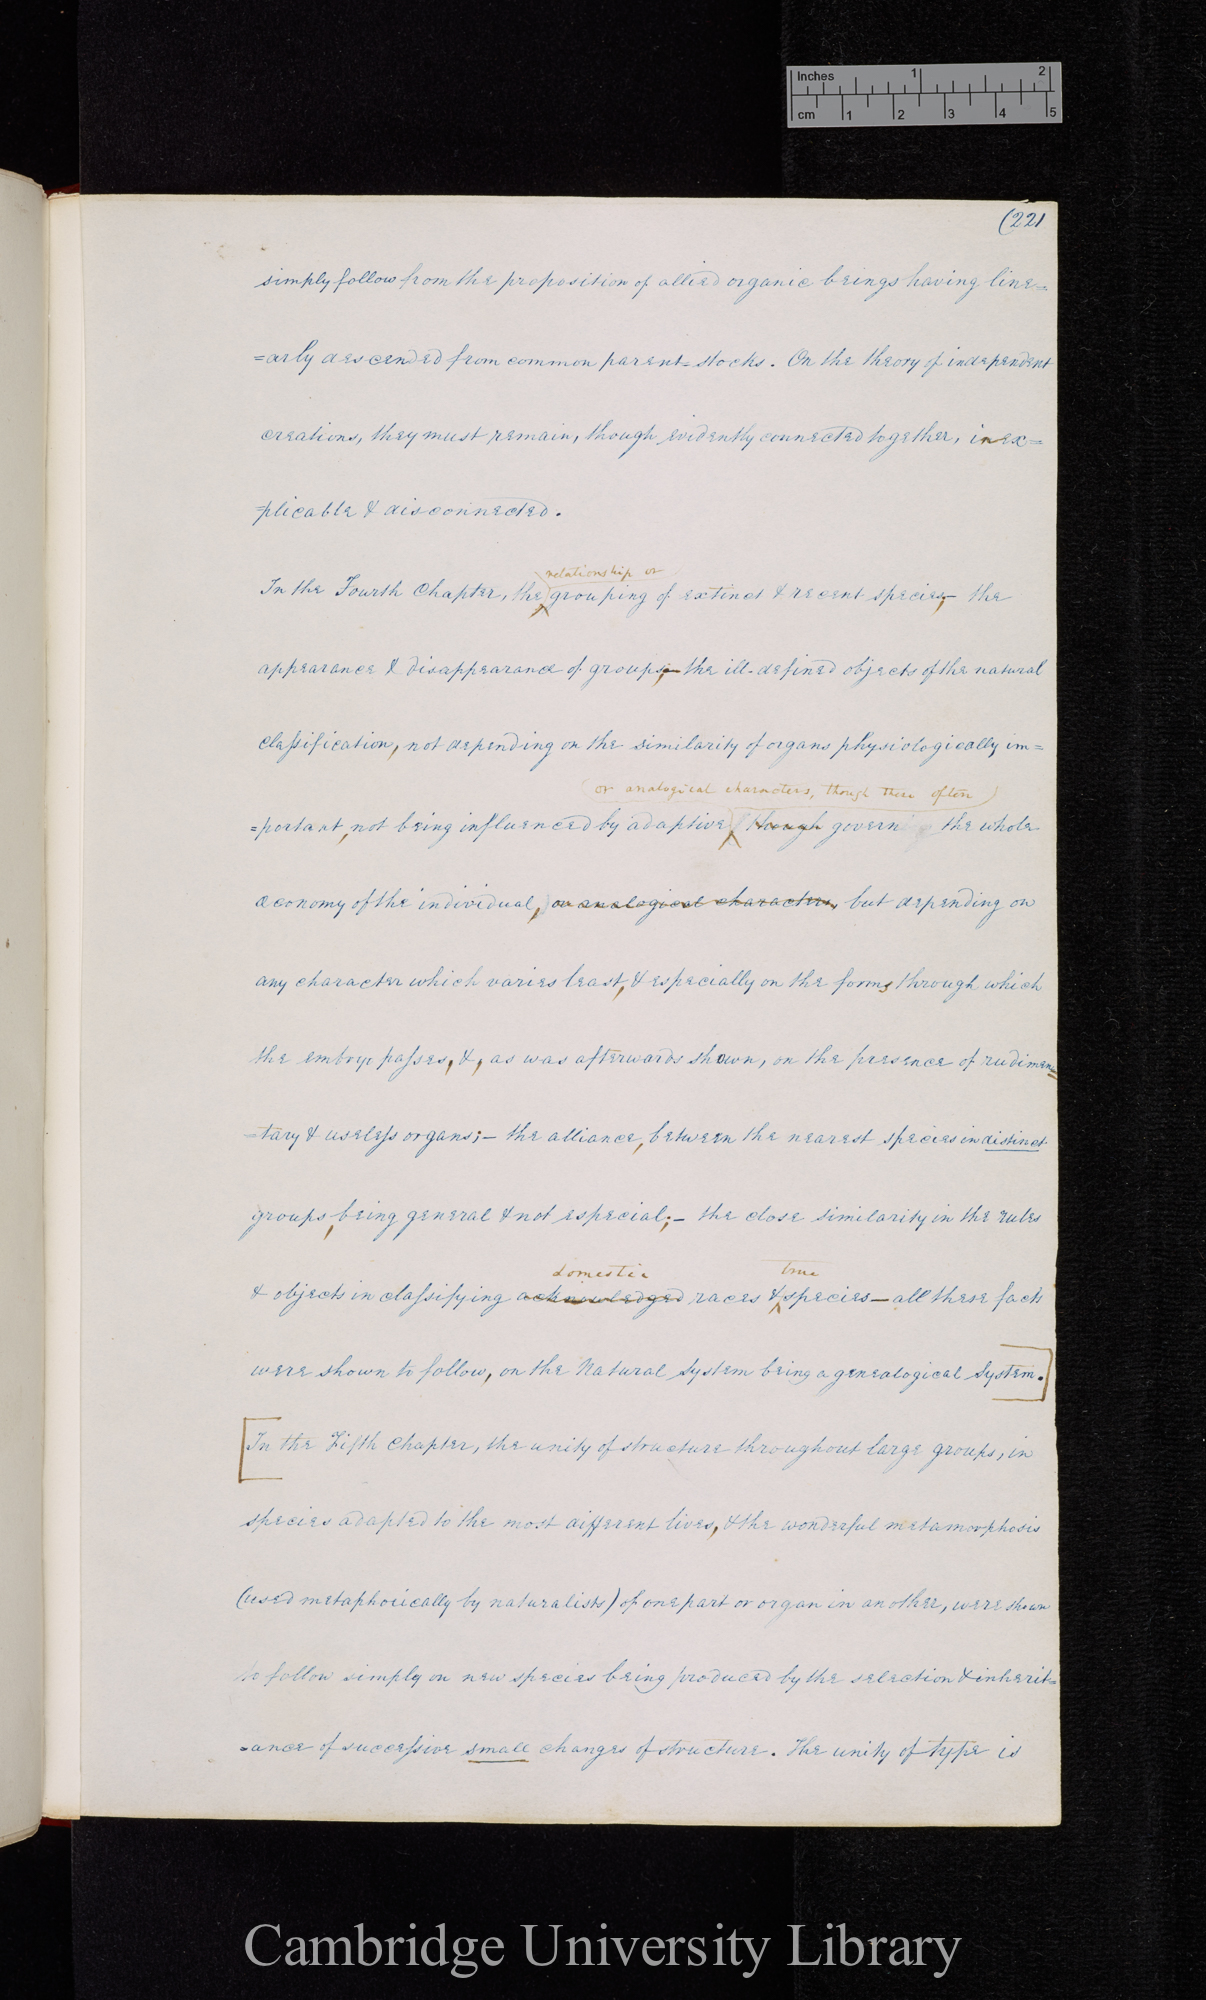 Inches 1 2
cm 1 2 3 4 5
(221
simply follow from the proposition of allied organic beings having line=
=arly descended from common parent=stocks. On the theory of independent
creations, they must remain, though evidently connected together, inex=
=plicable & disconnected.
relationship or
In the Fourth Chapter, the grouping of extinct & recent species,– the
appearance & disappearance of groups,– the ill-defined objects of the natural
classification, not depending on the similarity of organs physiologically im=
(or analogical characters, though these often)
=portant, not being influenced by adaptive (though govern the whole
economy of the individual,) or analogical characters, but depending on
any character which varies least, & especially on the forms through which
the embryo passes, &, as was afterwards shown, on the presence of rudimen=
=tary & useless organs;– the alliance, between the nearest species in distinct
groups, being general & not especial;– the close similarity in the rules
domestic true
& objects in classifying acknowledged races & species – all these facts
were shown to follow, on the Natural System being a genealogical System.]
[In the Fifth Chapter, the unity of structure throughout large groups, in
species adapted to the most different lives, & the wonderful metamorphosis
(used metaphorically by naturalists) of one part or organ in another, were shown
to follow simply on new species being produced by the selection & inherit=
=ance of successive small changes of structure. The unity of type is
Cambridge University Library